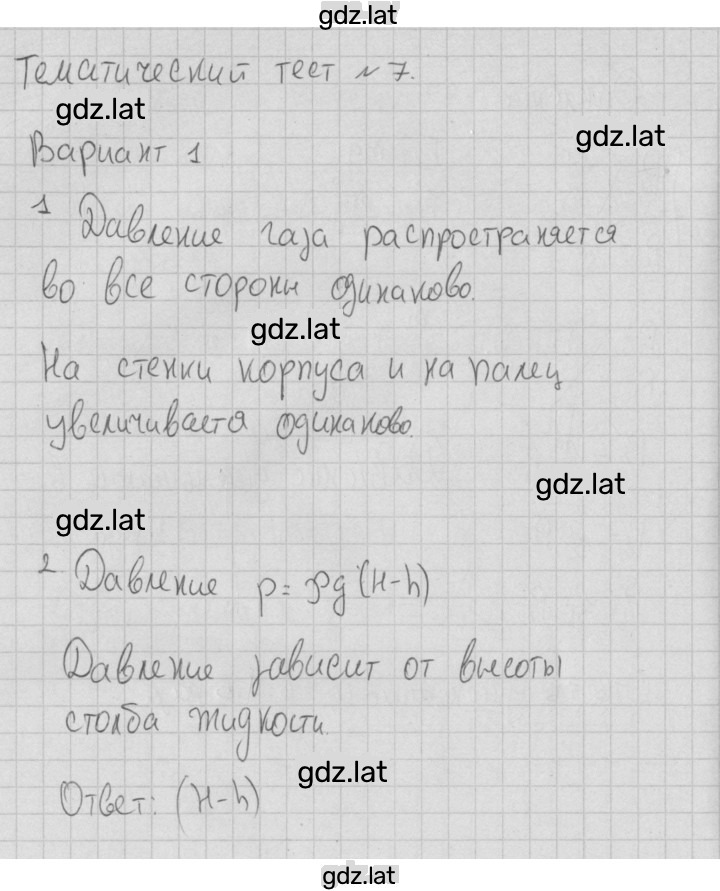 gdz.lat
Тематический тест №7.
gdz.lat
gdz.lat
Вариант 1
1 Давление газа распространяется
во все стороны одинаково.
gdz.lat
На стенки корпуса и на палец
увеличивается одинаково.
gdz.lat
gdz.lat
2 Давление p=ρg(H-h)
Давление зависит от высоты
столба жидкости.
gdz.lat
Ответ: (H-h)
gdz.lat